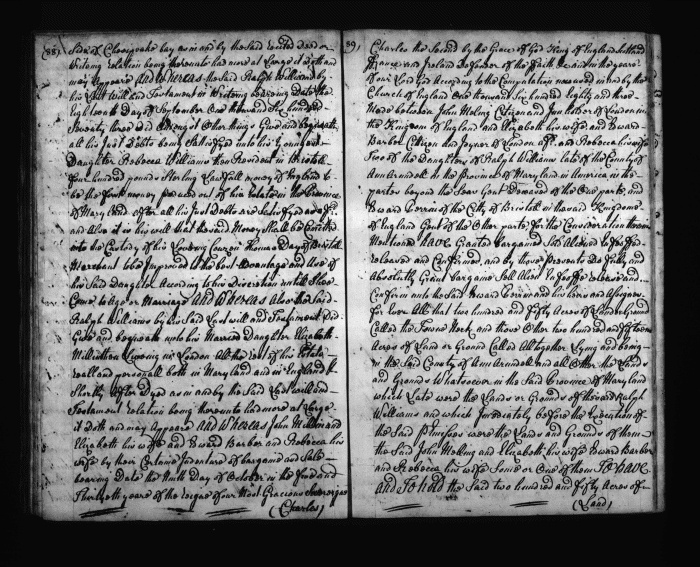 88)
Side of Chesepeake bay as in and by the said recited deed or
Writeing relation being thereunto had more at Large it doth and
may Appeare And Whereas the said Ralph Williams by
his Last Will and Testament in Writeing bearing Date the
Eighteenth Day of September One thousand Six hundred
Seventy three did Amongst Other things Give and bequeath
all his Just Debts being Satisfyed unto his Youngest
Daughter Rebecca Williams then Resident in Bristoll
four hundred pounds Sterling Lawfull money of England to
be the first money produced out of his Estate in the Province
of Maryland after all his Just Debts are Satisfyed as afd.
and Also it is his will that the said Money Shall be
into the Custody of his Loveing Couzen Thomas Day of Bristoll
Merchant to be Improved to the best Advantage and Use of
his Said Daughter According to his Discretion untill Shee
Come to Age or Marriage And Whereas Also the Said
Ralph Williams by his Said Last will and Testament Did
Give and bequeath unto his Married Daughter Elizabeth
Liveing in London All the rest of his Estate
reall and personall both in Maryland and in England &
Shortly after Dyed as in and by the Said Last will and
Testament relation being thereunto had more at Large
it Doth and may Appeare And Whereas John and
Elizabeth his wife and Edward Barber and Rebecca his
wife by their Certaine Indenture of bargaine and Sale
bearing Date the Day of October in the five and
Thirtyeth yeare of the reigne of our Most Gracious Sovereigne
(Charles)
89)
Charles the Second by the Grace of God King of England Scotland
France and Ireland Defender of the Faith &c and in the yeare
of our Lord God According to the Computation now used in and by the
Church of England One thousand Six hundred Eighty and three
Made between John Citizen and of London in
the Kingdom of England and Elizabeth his wife and Edward
Barber Citizen and of London afd. and Rebecca his wife
Two of the Daughters of Ralph Williams late of the County of
Ann Arundell in the Province of Maryland in America in the
partes beyond the Seas Gent Deceased of the One parte, and
Edward of the Citty of Bristoll in the said Kingdome
of England Gent of the Other parte, for the Consideration therein
Mentioned have Granted bargained Sold Aliened Enfeoffed
released and Confirmed, and by these Presents Do fully and
Absolutely Grant bargaine Sell Alien Enfeoffe release and
Confirm unto the Said Edward and his heirs and Assignes
for Ever All that two hundred and fifty Acres of Land or Ground
Called the Neck and those Other two hundred and fifteen
Acres of Land or Ground Called Altogether Lying and being
in the Said County of Ann Arundell and all Other the Lands
and Grounds Whatsoever in the Said Province of Maryland
which Late were the Lands or Grounds of the said Ralph
Williams and which Imediately before the Execution of
the Said Premisses were the Lands and Grounds of them
the Said John and Elizabeth his wife Edward Barber
and Rebecca his wife Some or One of them To have
and To hold the Said two hundred and fifty Acres of
(Land)